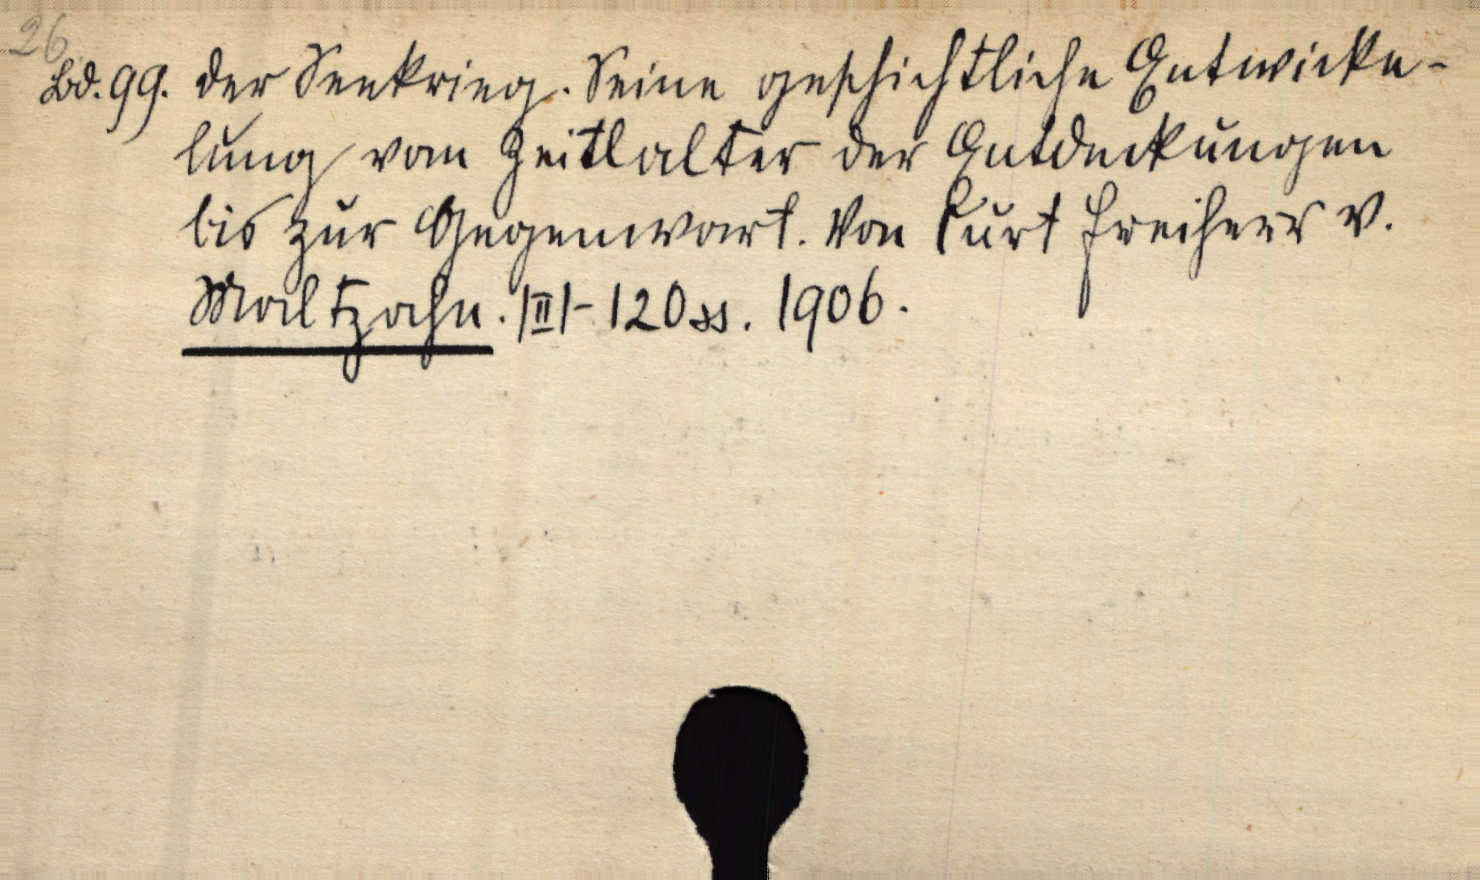 26
Bd. 99. Der Seekrieg. Seine geschichtliche Entwicke-
lung vom Zeitlalter der Entdeckungen
bis zur Gegenwart. Von Curt Freiherr v.
Maltzahn. |II|-120 ss. 1906.